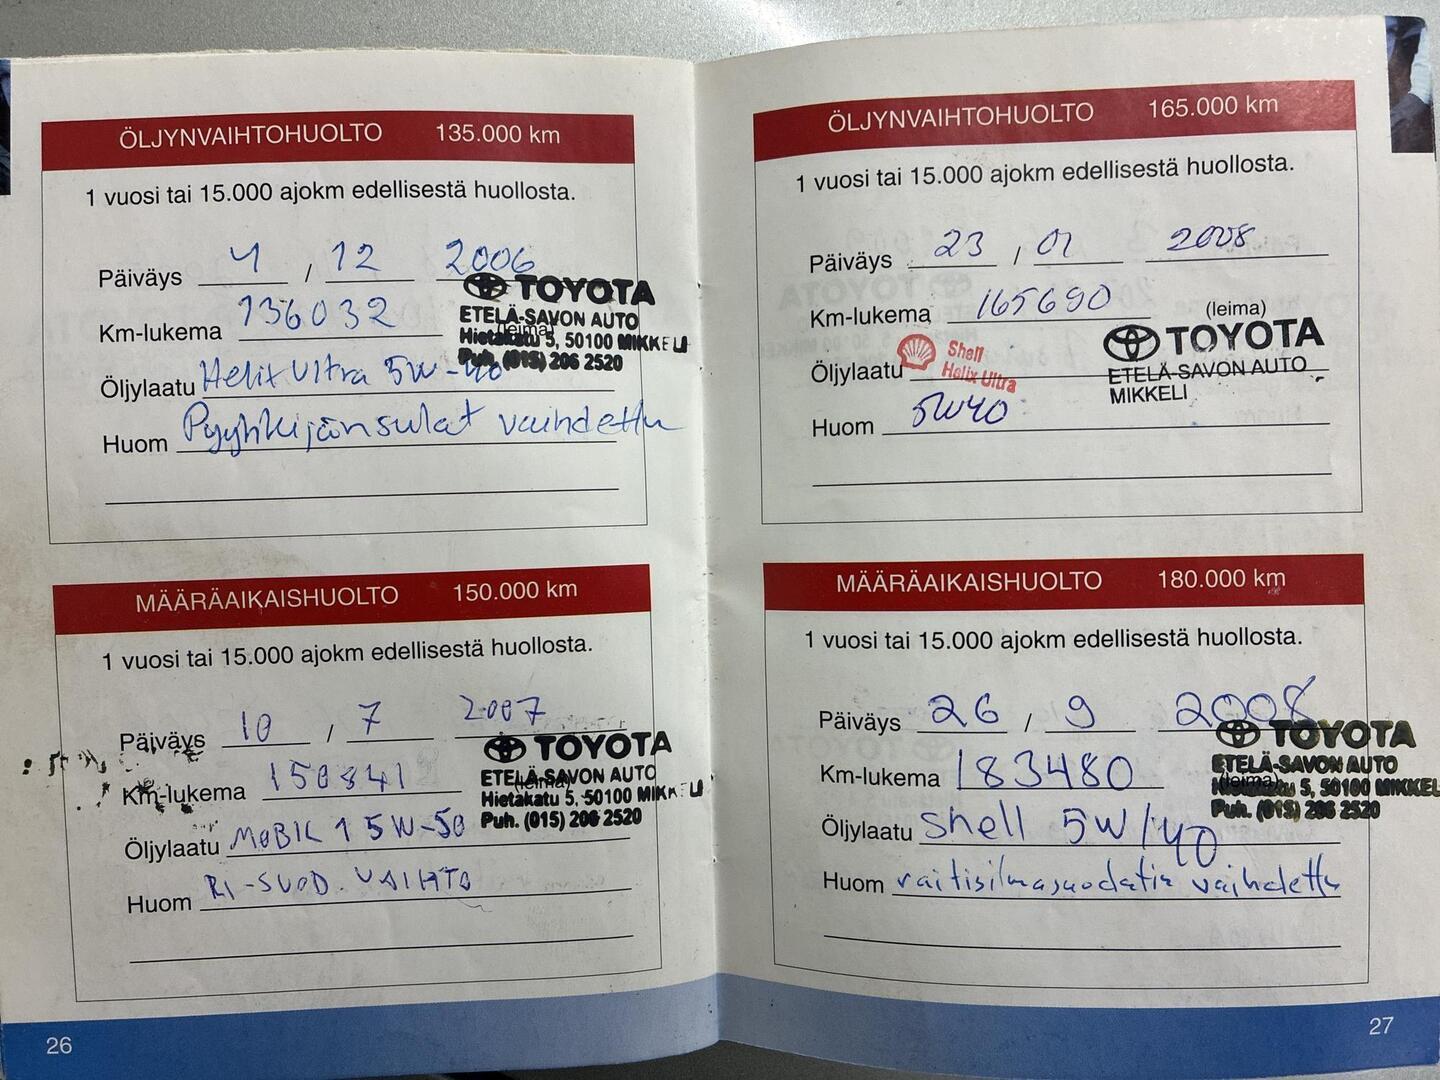 ÖLJYNVAIHTOHUOLTO 135.000 km
1 vuosi tai 15.000 ajokm edellisestä huollosta.
Päiväys 4 / 12 2006
Km-lukema 136032
(leima)
TOYOTA
ETELÄ-SAVON AUTO
Hietakatu 5, 50100 MIKKELI
Puh. (015) 206 2520
Öljylaatu Helix Ultra 5W-40
Huom Pyyhkijänsulat vaihdettu
MÄÄRÄAIKAISHUOLTO 150.000 km
1 vuosi tai 15.000 ajokm edellisestä huollosta.
Päiväys 10 / 7 2007
Km-lukema 150841
(leima)
TOYOTA
ETELÄ-SAVON AUTO
Hietakatu 5, 50100 MIKKELI
Puh. (015) 206 2520
Öljylaatu MOBIL 1 5W-50
Huom RI-SUOD. VAIHTO
26
ÖLJYNVAIHTOHUOLTO 165.000 km
1 vuosi tai 15.000 ajokm edellisestä huollosta.
Päiväys 23 / 01 2008
Km-lukema 165690
(leima)
TOYOTA
ETELÄ-SAVON AUTO
MIKKELI
Öljylaatu Shell
Helix Ultra
Huom 5W40
MÄÄRÄAIKAISHUOLTO 180.000 km
1 vuosi tai 15.000 ajokm edellisestä huollosta.
Päiväys 26 / 9 2008
Km-lukema 183480
(leima)
TOYOTA
ETELÄ-SAVON AUTO
Hietakatu 5, 50100 MIKKELI
Puh. (015) 206 2520
Öljylaatu Shell 5W/40
Huom raitisilmasuodatin vaihdettu
27